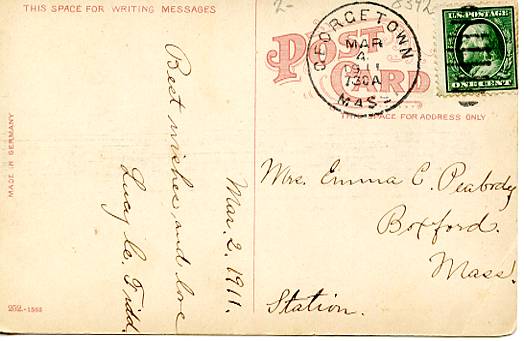 THIS SPACE FOR WRITING MESSAGES
2-
8392
POST
CARD
GEORGETOWN
MAR
4
1911
730A
MASS
U.S. POSTAGE
ONE CENT
THIS SPACE FOR ADDRESS ONLY
MADE IN GERMANY
Best wishes and love
Lucy
Mar. 2. 1911.
Mrs. Emma C. Peabody
Boxford.
Mass.
Station.